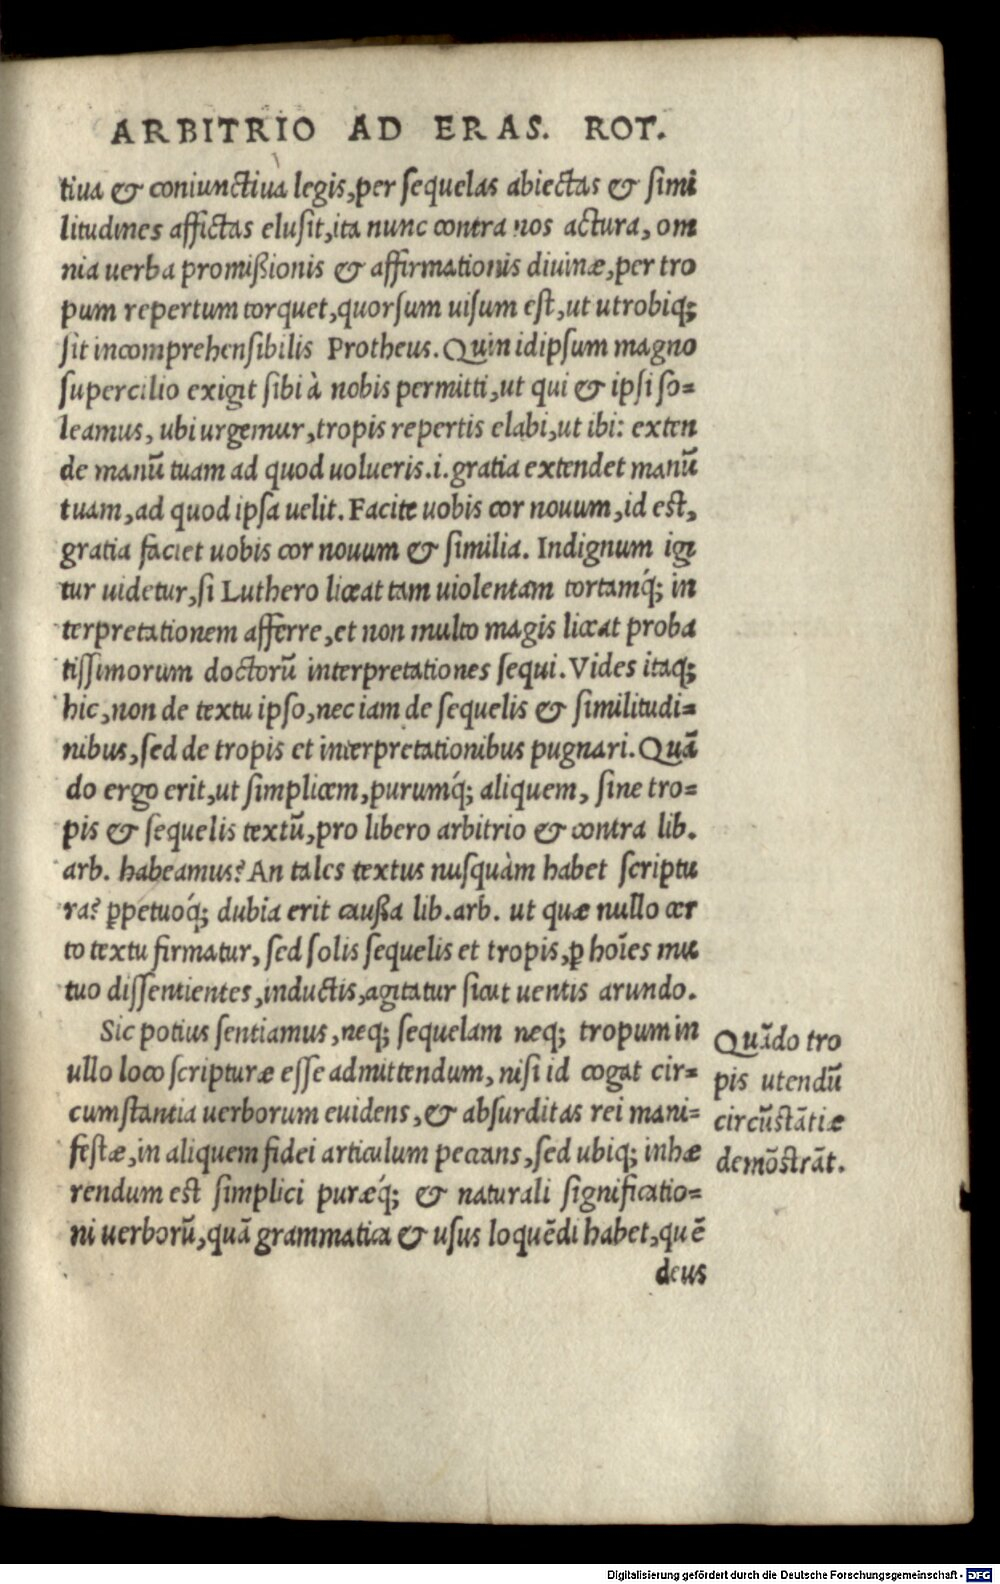 ARBITRIO AD ERAS. ROT.
tiua & coniunctiua legis, per ſequelas abiectas & ſimi
litudines affictas eluſit, ita nunc contra nos actura, om
nia uerba promiſſionis & affirmationis diuinæ, per tro
pum repertum torquet, quorſum uiſum eſt, ut utrobiq;
ſit incomprehenſibilis Protheus. Quin idipſum magno
ſupercilio exigit ſibi à nobis permitti, ut qui & ipſi ſo=
leamus, ubi urgemur, tropis repertis elabi, ut ibi: exten
de manū tuam ad quod uolueris .i. gratia extendet manū
tuam, ad quod ipſa uelit. Facite uobis cor nouum, id eſt,
gratia faciet uobis cor nouum & ſimilia. Indignum igi
tur uidetur, ſi Luthero liceat tam uiolentam tortamq́; in
terpretationem afferre, et non multo magis liceat proba
tiſſimorum doctorū interpretationes ſequi. Vides itaq;
hic, non de textu ipſo, nec iam de ſequelis & ſimilitudi=
nibus, ſed de tropis et interpretationibus pugnari. Quā
do ergo erit, ut ſimplicem, purumq́; aliquem, ſine tro=
pis & ſequelis textū, pro libero arbitrio & contra lib.
arb. habeamus? An tales textus nuſquàm habet ſcriptu
ra? ꝑpetuoq́; dubia erit cauſſa lib. arb. ut quæ nullo cer
to textu firmatur, ſed ſolis ſequelis et tropis, ꝑ hoīes mu
tuo diſſentientes, inductis, agitatur ſicut uentis arundo.
Sic potius ſentiamus, neq; ſequelam neq; tropum in
ullo loco ſcripturæ eſſe admittendum, niſi id cogat cir=
cumſtantia uerborum euidens, & abſurditas rei mani=
feſtæ, in aliquem fidei articulum peccans, ſed ubiq; inhæ
rendum eſt ſimplici puræq́; & naturali ſignificatio=
ni uerborū, quā grammatica & uſus loquēdi habet, quē
deus
Quādo tro
pis utendū
circūſtātiæ
demōſtrāt.
Digitalisierung gefördert durch die Deutsche Forschungsgemeinschaft - DFG